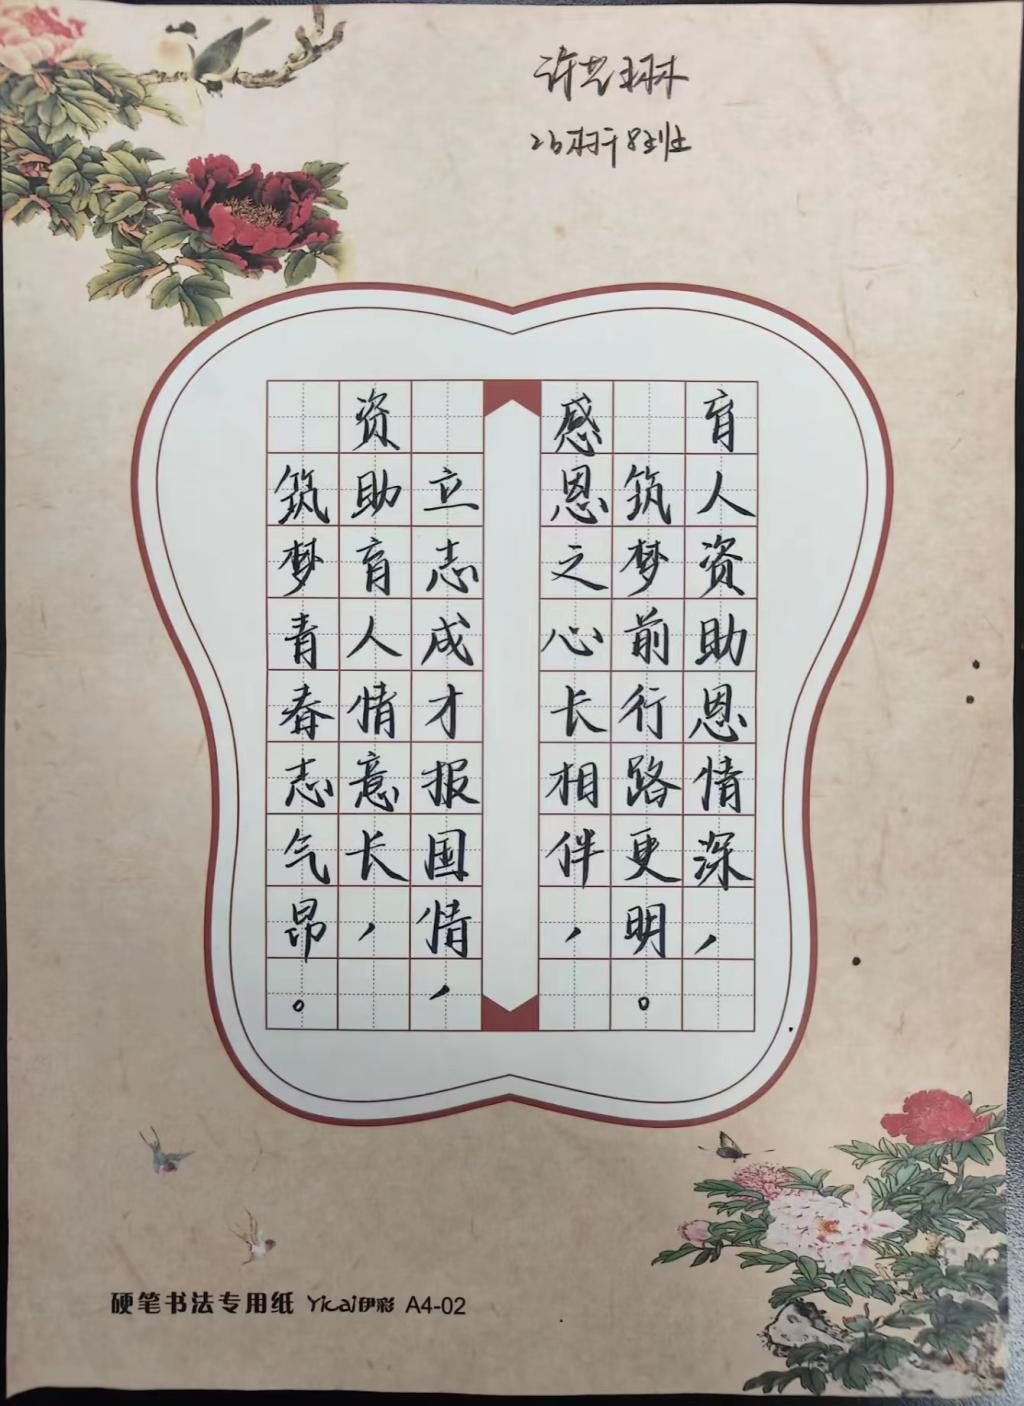 许艺琳
26树计8班
育人资助恩情深，
筑梦前行路更明。
感恩之心长相伴，
立志成才报国情，
资助育人情意长，
筑梦青春志气昂。
硬笔书法专用纸 Yicai伊彩 A4-02